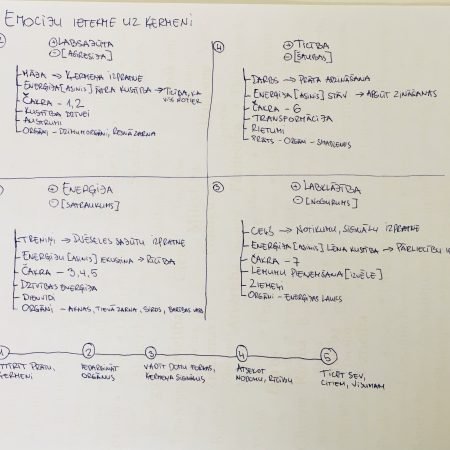 EMOCIJU IETEKME UZ ĶERMENI
⊕ LABSAJŪTA
⊖ [AGRESIJA]
MĀJA → ĶERMEŅA IZPRATNE
ENERĢIJA [ASINIS] ĀTRA KUSTĪBA → TICĪBA, KA
ČAKRA - 1,2
KUSTĪBA DZĪVEI
AUSTRUMI
ORGĀNI - DZIMUMORGĀNI, RESNĀ ZARNA
④ ⊕ TICĪBA
⊖ [ŠAUBAS]
DARBS → PRĀTA APZINĀŠANA
ENERĢIJA [ASINIS] STĀV → APGŪT ZINĀŠANAS
ČAKRA - 6
TRANSFORMĀCIJA
RIETUMI
PRĀTS - ORGĀNI - SMADZENES
⊕ ENERĢIJA
⊖ [SATRAUKUMS]
TRENIŅI → DVĒSELES SAJŪTU IZPRATNE
ENERĢIJU [ASINIS] → RĪCĪBA
ČAKRA - 3,4,5
DZĪVĪBAS ENERĢIJA
DIENVIDI
ORGĀNI - AKNAS, TIEVĀ ZARNA, SIRDS,
⊕ LABKLĀJĪBA
⊖ [NOGURUMS]
CEĻŠ → NOTIKUMU, SIGNĀLU IZPRATNE
ENERĢIJA [ASINIS] LĒNA KUSTĪBA → PĀRLIECĪBU
ČAKRA - 7
LĒMUMU PIEŅEMŠANA [IZVĒLE]
ZIEMEĻI
ORGĀNI - ENERĢIJAS LAUKS
1 2 3 4 5
ATTĪRĪT PRĀTU,
ĶERMENI
IEDARBINĀT
ORGĀNUS
VADĪT DOMU FORMAS,
ĶERMEŅA SIGNĀLUS
ATSEKOT
NODOMU, RĪCĪBU
TICĒT SEV,
CITIEM, VISUMAM